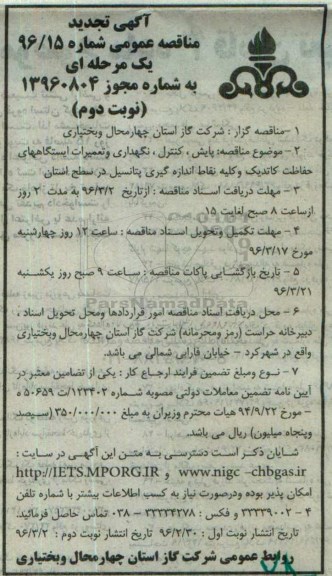 آگهی تجدید
مناقصه عمومی شماره ۹۶/۱۵
یک مرحله ای
به شماره مجوز ۱۳۹۶۰۸۰۴
(نوبت دوم)
۱ –مناقصه گزار : شرکت گاز استان چهارمحال وبختیاری
۲ – موضوع مناقصه: پایش ، کنترل ، نگهداری وتعمیرات ایستگاههای
حفاظت کاتدیک وکلیه نقاط اندازه گیری پتانسیل در سطح استان
۳ – مهلت دریافت اسناد مناقصه : ازتاریخ ۹۶/۳/۲ به مدت ۲ روز
ازساعت ۸ صبح لغایت ۱۵
۴ – مهلت تکمیل وتحویل اسناد مناقصه : ساعت ۱۲ روز چهارشنبه
مورخ ۹۶/۳/۱۷
۵ – تاریخ بازگشایی پاکات مناقصه : ساعت ۹ صبح روز یکشنبه
۹۶/۳/۲۱
ParsNamadData
۶ – محل دریافت اسناد مناقصه امور قراردادها ومحل تحویل اسناد ،
دبیرخانه حراست (رمز ومحرمانه) شرکت گاز استان چهارمحال وبختیاری
واقع در شهرکرد – خیابان فارابی شمالی می باشد.
۷ – نوع ومبلغ تضمین فرایند ارجاع کار : یکی از تضامین معتبر در
آیین نامه تضمین معاملات دولتی مصوبه شماره ۱۲۳۴۰۲/ت ۵۰۶۵۹ ه
– مورخ ۹۴/۹/۲۲ هیات محترم وزیران به مبلغ ۳۵۰/۰۰۰/۰۰۰ (سیصد
وپنجاه میلیون) ریال می باشد.
شایان ذکر است دسترسی به متن این آگهی در سایت :
www.nigc –chbgas.ir و http://IETS.MPORG.IR
امکان پذیر بوده ودرصورت نیاز به کسب اطلاعات بیشتر با شماره تلفن
۴ – ۳۳۳۳۹۰۰۲ و فکس : ۳۳۳۳۴۲۷۸ – ۰۳۸ تماس حاصل فرمائید.
تاریخ انتشار نوبت اول : ۹۶/۲/۳۰ تاریخ انتشار نوبت دوم : ۹۶/۳/۲
روابط عمومی شرکت گاز استان چهارمحال وبختیاری